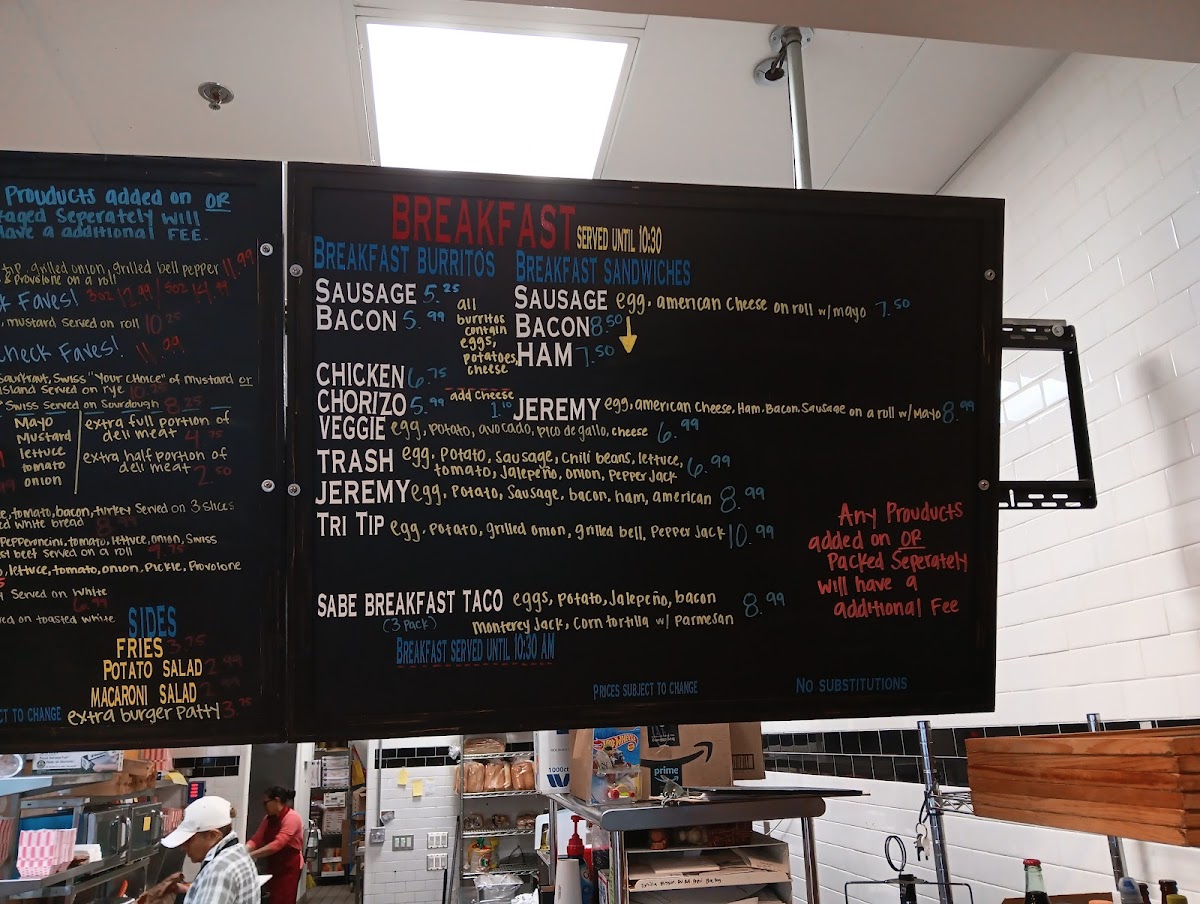 Prouducts added on OR
Seperately will
have a additional FEE.
tip, grilled onion, grilled bell pepper 11.99
& Provolone on a roll
Faves! 3oz 12.99 / 5oz 14.99
, mustard served on roll 10.25
check Faves! 11.99
Saurkraut, Swiss "Your Choice" of mustard or
island served on rye 10.75
Swiss Served on Sourdough 8.25
Mayo
Mustard
lettuce
tomato
onion
extra full portion of
deli meat 4.75
extra half portion of
deli meat 2.50
, tomato, bacon, turkey Served on 3 slices
white bread 8.99
Pepperoncini, tomato, lettuce, onion, Swiss
beef Served on a roll 9.75
, lettuce, tomato, onion, Pickle, Provolone
Served on White
6.99
on toasted white
SIDES
FRIES 3.75
POTATO SALAD 2.99
MACARONI SALAD
TO CHANGE
extra burger Patty 3.75
BREAKFAST SERVED UNTIL 10:30
BREAKFAST BURRITOS
SAUSAGE 5.25
BACON 5.99
all
burritos
contain
eggs,
potatoes,
cheese
CHICKEN 6.75
CHORIZO 5.99
add cheese
1.10
VEGGIE egg, potato, avocado, pico de gallo, cheese 6.99
TRASH egg, potato, sausage, chili beans, lettuce,
tomato, Jalepeño, onion, Pepper Jack 6.99
JEREMY egg, potato, Sausage, bacon, ham, american 8.99
TRI TIP egg, potato, grilled onion, grilled bell, Pepper Jack 10.99
BREAKFAST SANDWICHES
SAUSAGE egg, american cheese on roll w/mayo 7.50
BACON 8.50
HAM 7.50
JEREMY egg, american cheese, Ham, Bacon, Sausage on a roll w/Mayo 8.99
SABE BREAKFAST TACO eggs, potato, Jalepeño, bacon
(3 pack) Monterey Jack, Corn tortilla w/ Parmesan 8.99
BREAKFAST SERVED UNTIL 10:30 AM
PRICES SUBJECT TO CHANGE
NO SUBSTITUTIONS
Any Prouducts
added on OR
Packed Seperately
will have a
additional Fee
Hot Wheels
prime